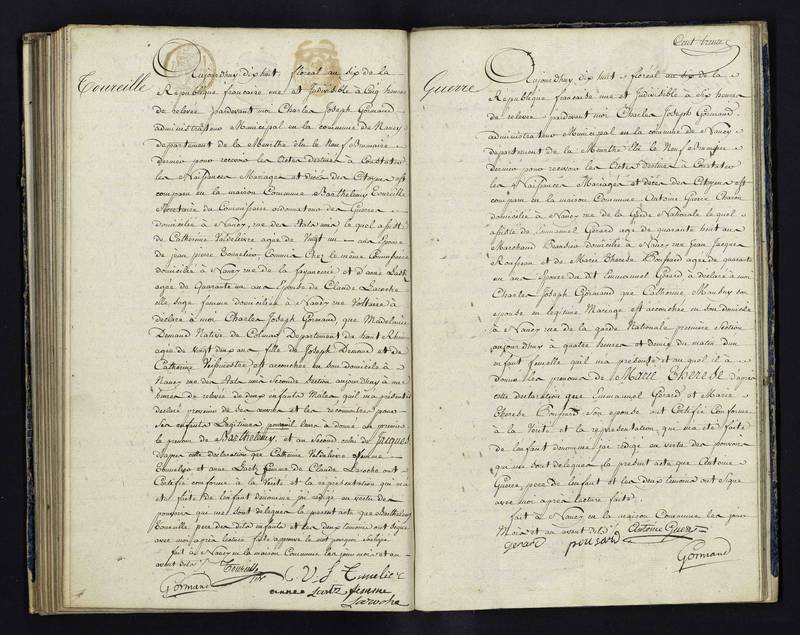 Toureille
Aujourdhuy dix huit floréal an six de la
République francaise une et Indivisible à Cinq heures
de relevée pardevant moi Charles Joseph Gormand
administrateur Municipal en la commune de Nancy
département de la Meurthe élu le neuf Brumaire
dernier pour recevoir les Actes destinés à Constater
les Naissances Mariages et décès des Citoyens est
comparu en la maison Commune Barthelemy Toureille
Secretaire du Commissaire ordonnateur des Guerres
domicilié à Nancy, rue des lequel assisté
de Catherine Valdelievre agée de Vingt un ans Epouse
de jean pierre Commis Chez le même Commissaire
domicilié à Nancy rue de la fayancerie et d'anne
agée de Quarante un ans Epouse de Claude Laroche
elle sage femme domiciliée à Nancy rue Voltaire à
déclaré à moi Charles Joseph Gormand, que Madelaine
Demand Native de Colmar Département du haut Rhin
agée de Vingt deux ans fille de Joseph Demand et de
Catherine est accouchée en son domicile à
Nancy rue des Seconde Section aujourdhuy à une
heure de relevée de deux enfants Males qui ma présenté
déclaré provenir de ses œuvres et les reconnaitre pour
ses enfants Légitimes leur a donné au premier
le prenom de Barthelemy, et au Second celui de Jacques
Dapres cette déclaration que Catherine Valdelievre femme
et anne Lartz femme de Claude Laroche ont
Certifié conforme à la Vérité et la représentation qui m'a
été faite de lenfant dénommé jai rédigé en vertu des
pouvoirs qui me sont délegués le présent acte que Barthelemy
Toureille pere desdits enfants et les deux temoins ont signé
avec moi après lecture faite approuvé le mot
fait à Nancy en la maison Commune les jour mois et an
avant dits
Gormand Toureille L. V. f. Tmelier
annee Lartz femme
Laroche
Cent treize
Guerre
Aujourdhuy dix huit floréal an six de la
République francaise une et Indivisible à Six heures
de relevée pardevant moi Charles Joseph Gormand
administrateur Municipal en la commune de Nancy
département de la Meurthe élu le Neuf Brumaire
dernier pour recevoir les Actes destinés à Constater
les Naissances Mariages et décès des Citoyens est
comparu en la maison Commune Antoine Guerre
domicilié à Nancy rue de la Garde Nationale lequel
assisté de Emmanuel Gérard agé de quarante huit ans
Marchand Brasseur domicilié à Nancy rue Jean Jacques
Rousseau et de Marie Therese Pousard agée de quarante
un ans épouse du dit Emmanuel Gérard à déclaré à moi
Charles Joseph Gormand que Catherine son
épouse en légitime Mariage est accouchée en son domicile
à Nancy rue de la garde Nationale première Section
aujourdhuy à quatre heures et demie du matin d'un
enfant femelle quil ma présenté et auquel il a
donné les prenoms de Marie Therese d'après
cette déclaration que Emmanuel Gérard et Marie
Therese Pousard son épouse ont Certifié Conforme
à la Vérité et la représentation qui ma été faite
de lenfant dénommé jai rédigé en vertu des pouvoirs
qui me sont délegués le présent acte que Antoine
Guerre, pere de lenfant et les deux temoins ont signé
avec moi après lecture faite.
fait à Nancy en la maison Commune les jour
Mois et an avant dits
Antoine Guerre
gerard pousard
Gormand